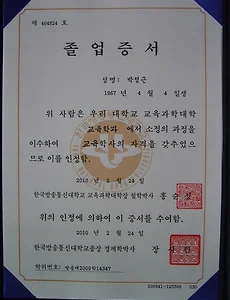 제 464524 호
졸업증서
성명: 박정근
1967 년 4 월 4 일생
위 사람은 우리 대학교 교육과학대학
교육학과 에서 소정의 과정을
이수하여 교육학사의 자격을 갖추었으
므로 이를 인정함.
2010 년 2 월 24 일
한국방송통신대학교 교육과학대학장 철학박사 홍순정
위의 인정에 의하여 이 증서를 수여함.
2010 년 2 월 24 일
한국방송통신대학교총장 경제학박사 장시원
학위번호: 방송대2009학14347